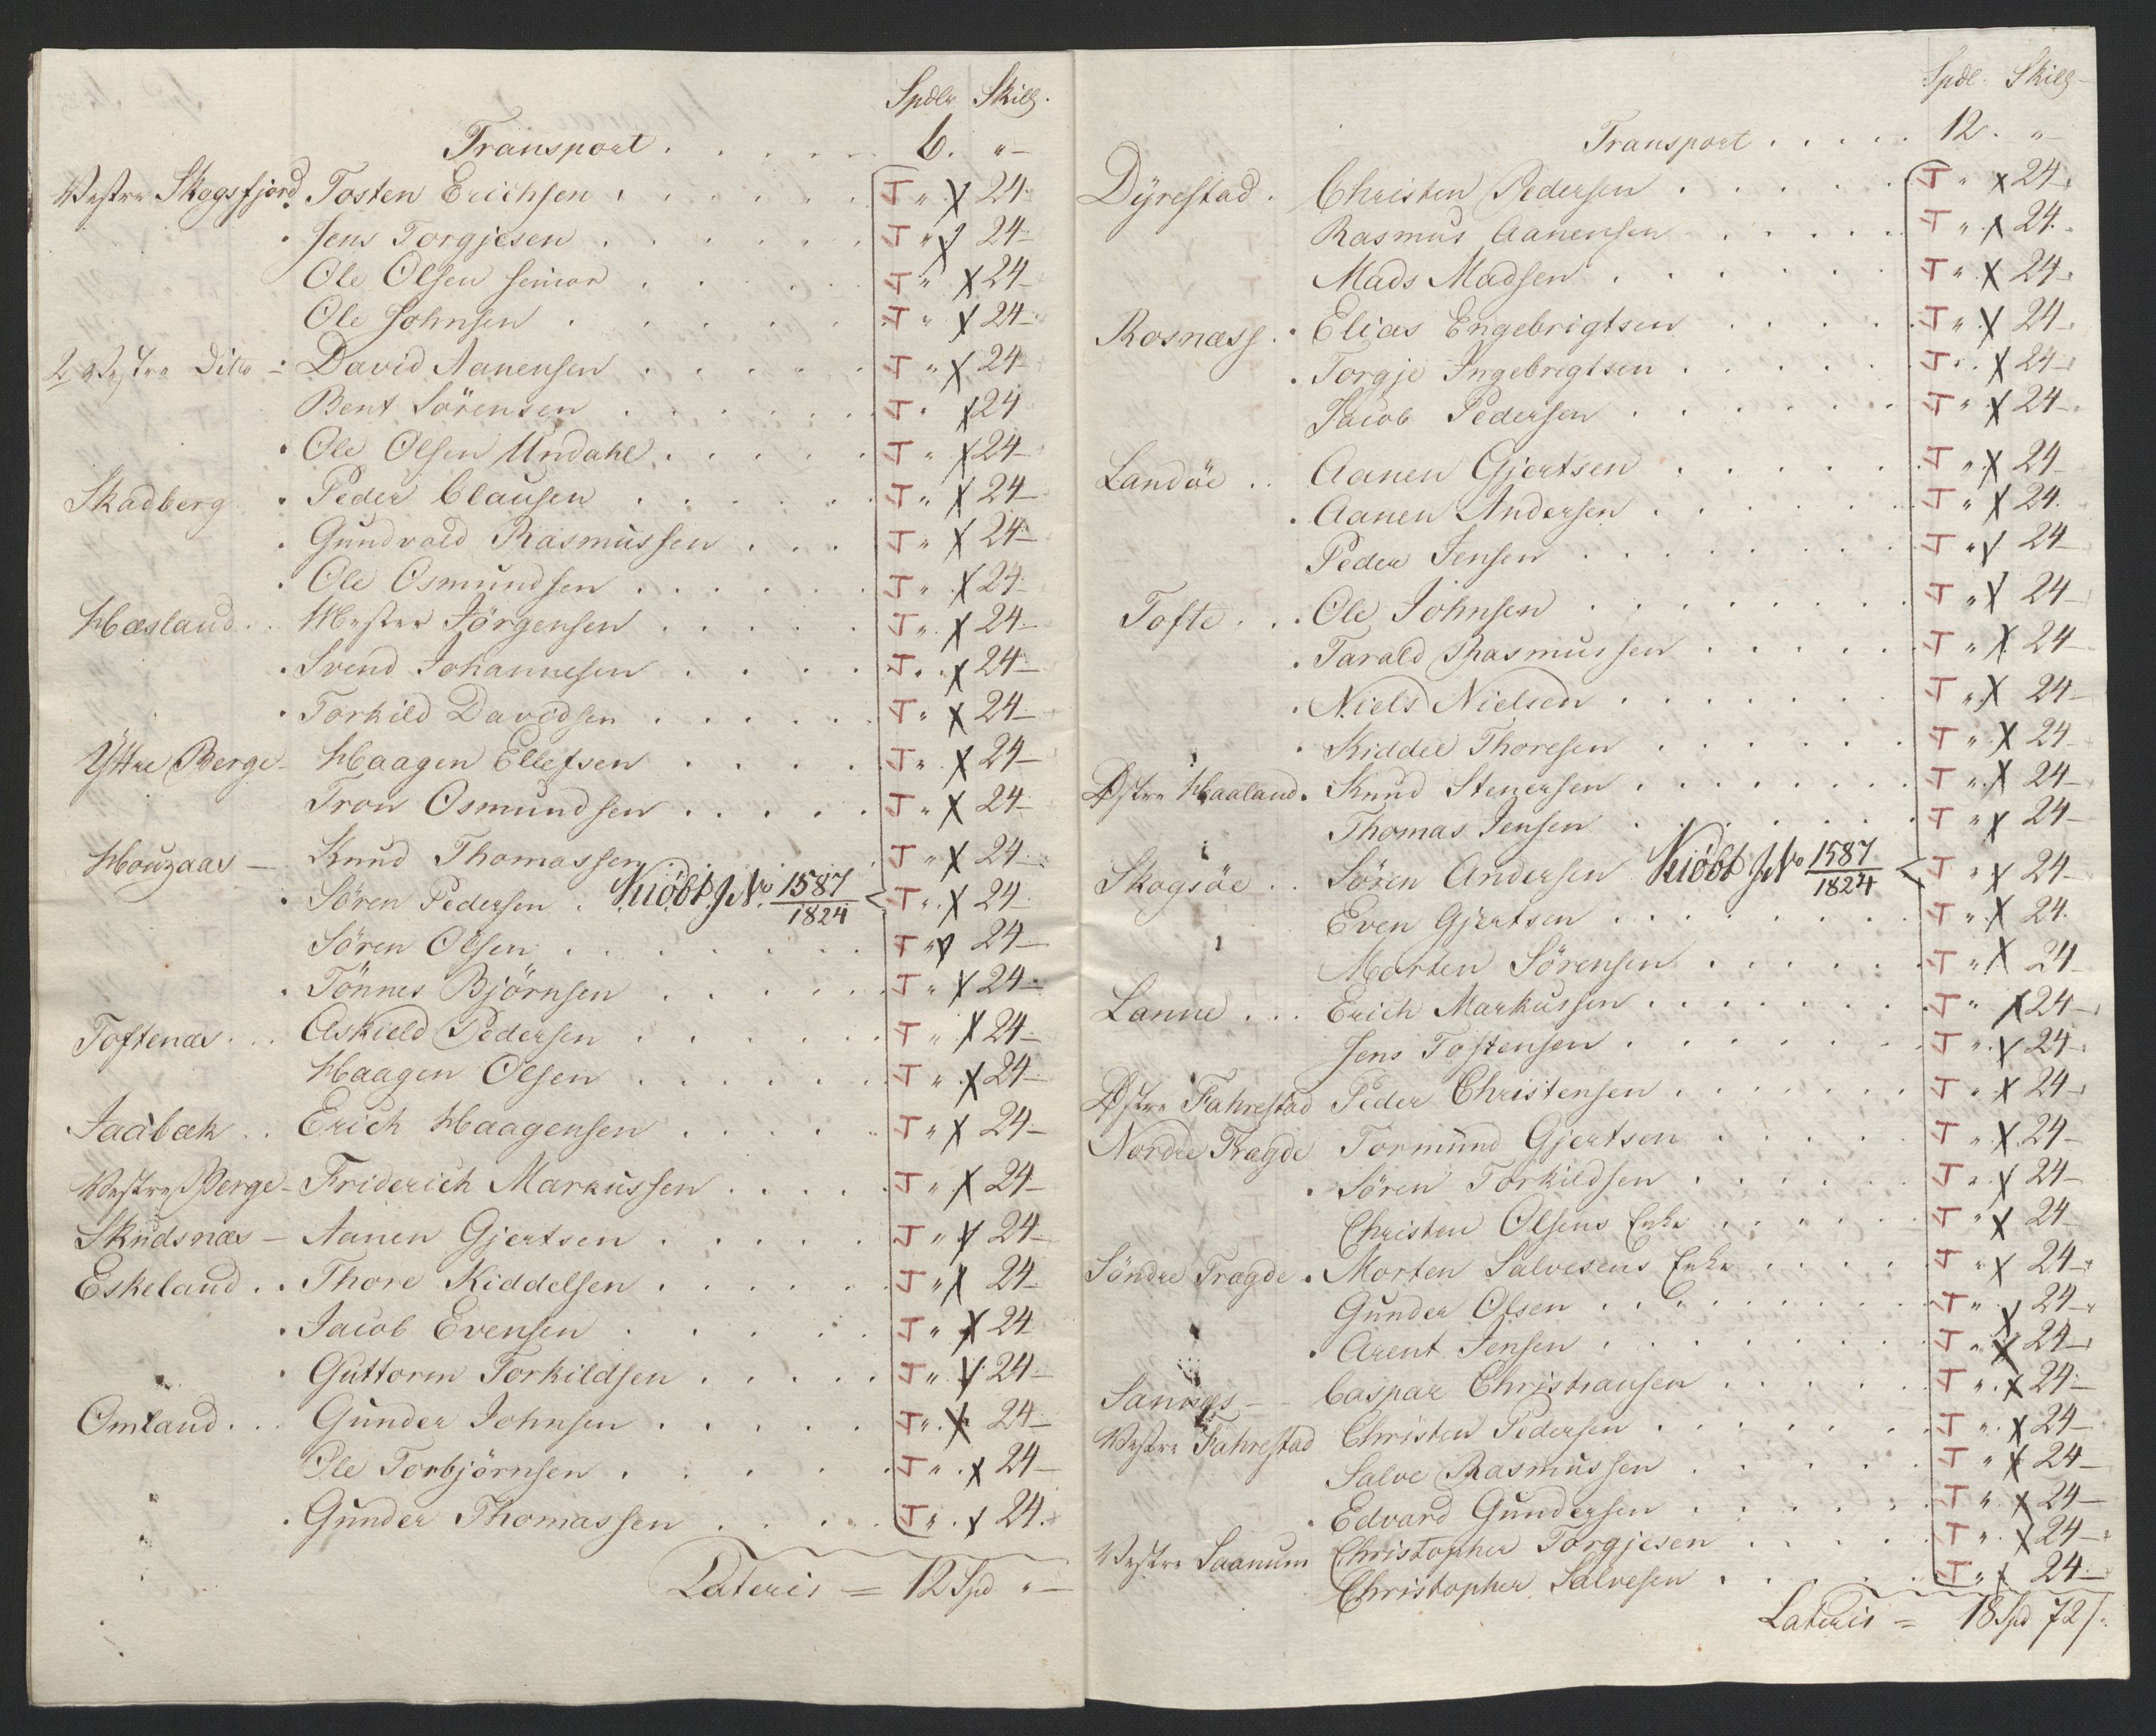 Spdlr. Skilg.
Transport . . . . . 6. "-
Vestre Skogsfjord. Tosten Erichsen . . . . . J " X 24-
Jens Torgjesen . . . . . J " X 24-
Ole Olsen senior . . . . . J " X 24-
Ole Johnsen . . . . . J " X 24-
2 Vestre Dito - David Aanensen . . . . . J " X 24-
Bent Sörensen . . . . . J " X 24
Ole Olsen Undahl . . . . . J " X 24-
Skadberg . Peder Clausen . . . . . J " X 24-
Gundvald Rasmussen . . . J " X 24-
Ole Osmundsen . . . . . J " X 24-
Hæsland . . Jörgensen . . . . . J " X 24-
Svend Johannesen . . . . J " X 24-
Torkild Davidsen . . . . . J " X 24-
Yttre Berge - Haagen Ellefsen . . . . J " X 24-
Tron Osmundsen . . . . . J " X 24-
Houzaas - Knud Thomassen . . . . J " X 24-
Sören Pedersen . Kiöbt J No 1587/1824 J " X 24-
Sören Olsen . . . . . J " X 24-
Tönnes Björnsen . . . . . J " X 24-
Toftenæs . . . Askield Pedersen . . . . . J " X 24-
Haagen Olsen . . . . . J " X 24-
Jaabæk . . Erich Haagensen . . . . . J " X 24-
Vestre Berge - Friderich Markussen . . . . . J " X 24-
Skudsnæs - Aanen Gjertsen . . . . . J " X 24-
Eskeland . . Thore Kiddelsen . . . . . J " X 24-
Jacob Evensen . . . . . J " X 24
Guttorm Torkildsen . . . . . J " X 24-
Omland . . . Gunder Johnsen . . . . . J " X 24-
Ole Torbjörnsen . . . . . J " X 24-
Gunder Thomassen . . . . J " X 24-
Lateris = 12 Spd "-
Spdl. Skilg-
Transport . . . . . 12. "-
Dÿrestad . Christen Pedersen . . . . . J " X 24-
Rasmus Aanensen . . . . . J " X 24-
Mads Madsen . . . . . J " X 24-
Rosnæss . Elias Engebrigtsen . . . . . J " X 24-
Torgje Ingebrigtsen . . . . . J " X 24-
Jacob Pedersen . . . . . J " X 24-
Landöe . . Aanen Gjertsen . . . . . J " X 24-
Aanen Andersen . . . . . J " X 24.
Peder Jensen . . . . . J " X 24-
Tofte . . . Ole Johnsen . . . . . J " X 24-
Tarald Rasmussen . . . . . J " X 24-
Niels Nielsen . . . . . J " X 24-
Kiddel Thoresen . . . . . J " X 24-
Östre Haaland. Knud Stenersen . . . . . J " X 24-
Thomas Jensen . . . . . J " X 24-
Skogsöe . . Sören Andersen Kiöbt J No 1587/1824 J " X 24-
Even Gjertsen . . . . . J " X 24.
Morten Sörensen . . . . . J " X 24-
Lanne . . . Erich Markussen . . . . . J " X 24-
Jens Tostensen . . . . . J " X 24-
Östre Fahrestad Peder Christensen . . . . . J " X 24-
Nordre Tragde Tormund Gjertsen . . . . . J " X 24-
Sören Torkildsen . . . . . J " X 24-
Christen Olsens Enke . . . . . J " X 24
Söndre Tragde . Morten Salvesens Enke . . . . J " X 24-
Gunder Olsen . . . . . J " X 24-
Arent Jensen . . . . . J " X 24-
Sannæs - - Caspar Christiansen . . . . . J " X 24-
Vestre Fahrestad Christen Pedersen . . . . . J " X 24-
Salve Rasmussen . . . . . J " X 24-
Edvard Gundersen . . . . . J " X 24-
Vestre Saanum Christopher Torgjesen . . . . . J " X 24-
Christopher Salvesen . . . . . J " X 24-
Lateris = 18 Spd 72 s.